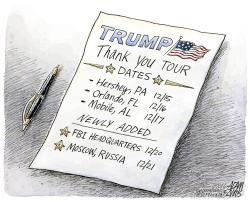 TRUMP
Thank you TOUR
DATES
- Hershey, PA 12/15
- Orlando, FL 12/16
- Mobile, AL 12/17
NEWLY ADDED
FBI HEADQUARTERS 12/20
MOSCOW, RUSSIA 12/21